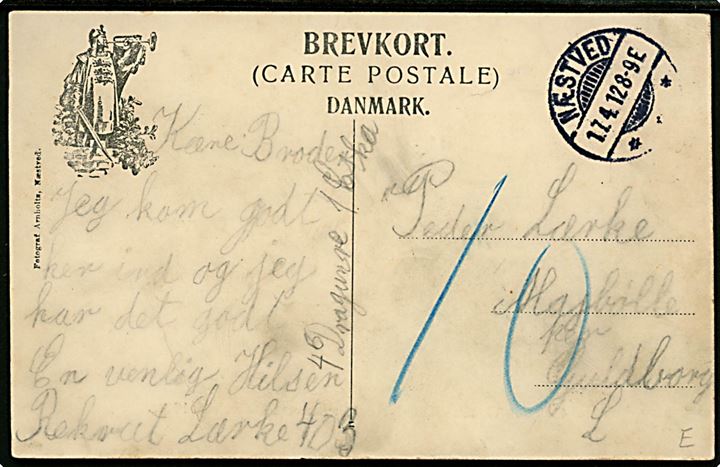 BREVKORT.
(CARTE POSTALE)
DANMARK.
NÆSTVED
17.4.12.8-9E
Fotograf Arnholtz, Næstved.
Kære Broder
Jeg kom godt
her ind og jeg
har det godt
En venlig Hilsen
Rekrut Lærke 403
46 Dragunre 1 Eska
Peder Lærke
Majbölle
per
Guldborg
L
10
E